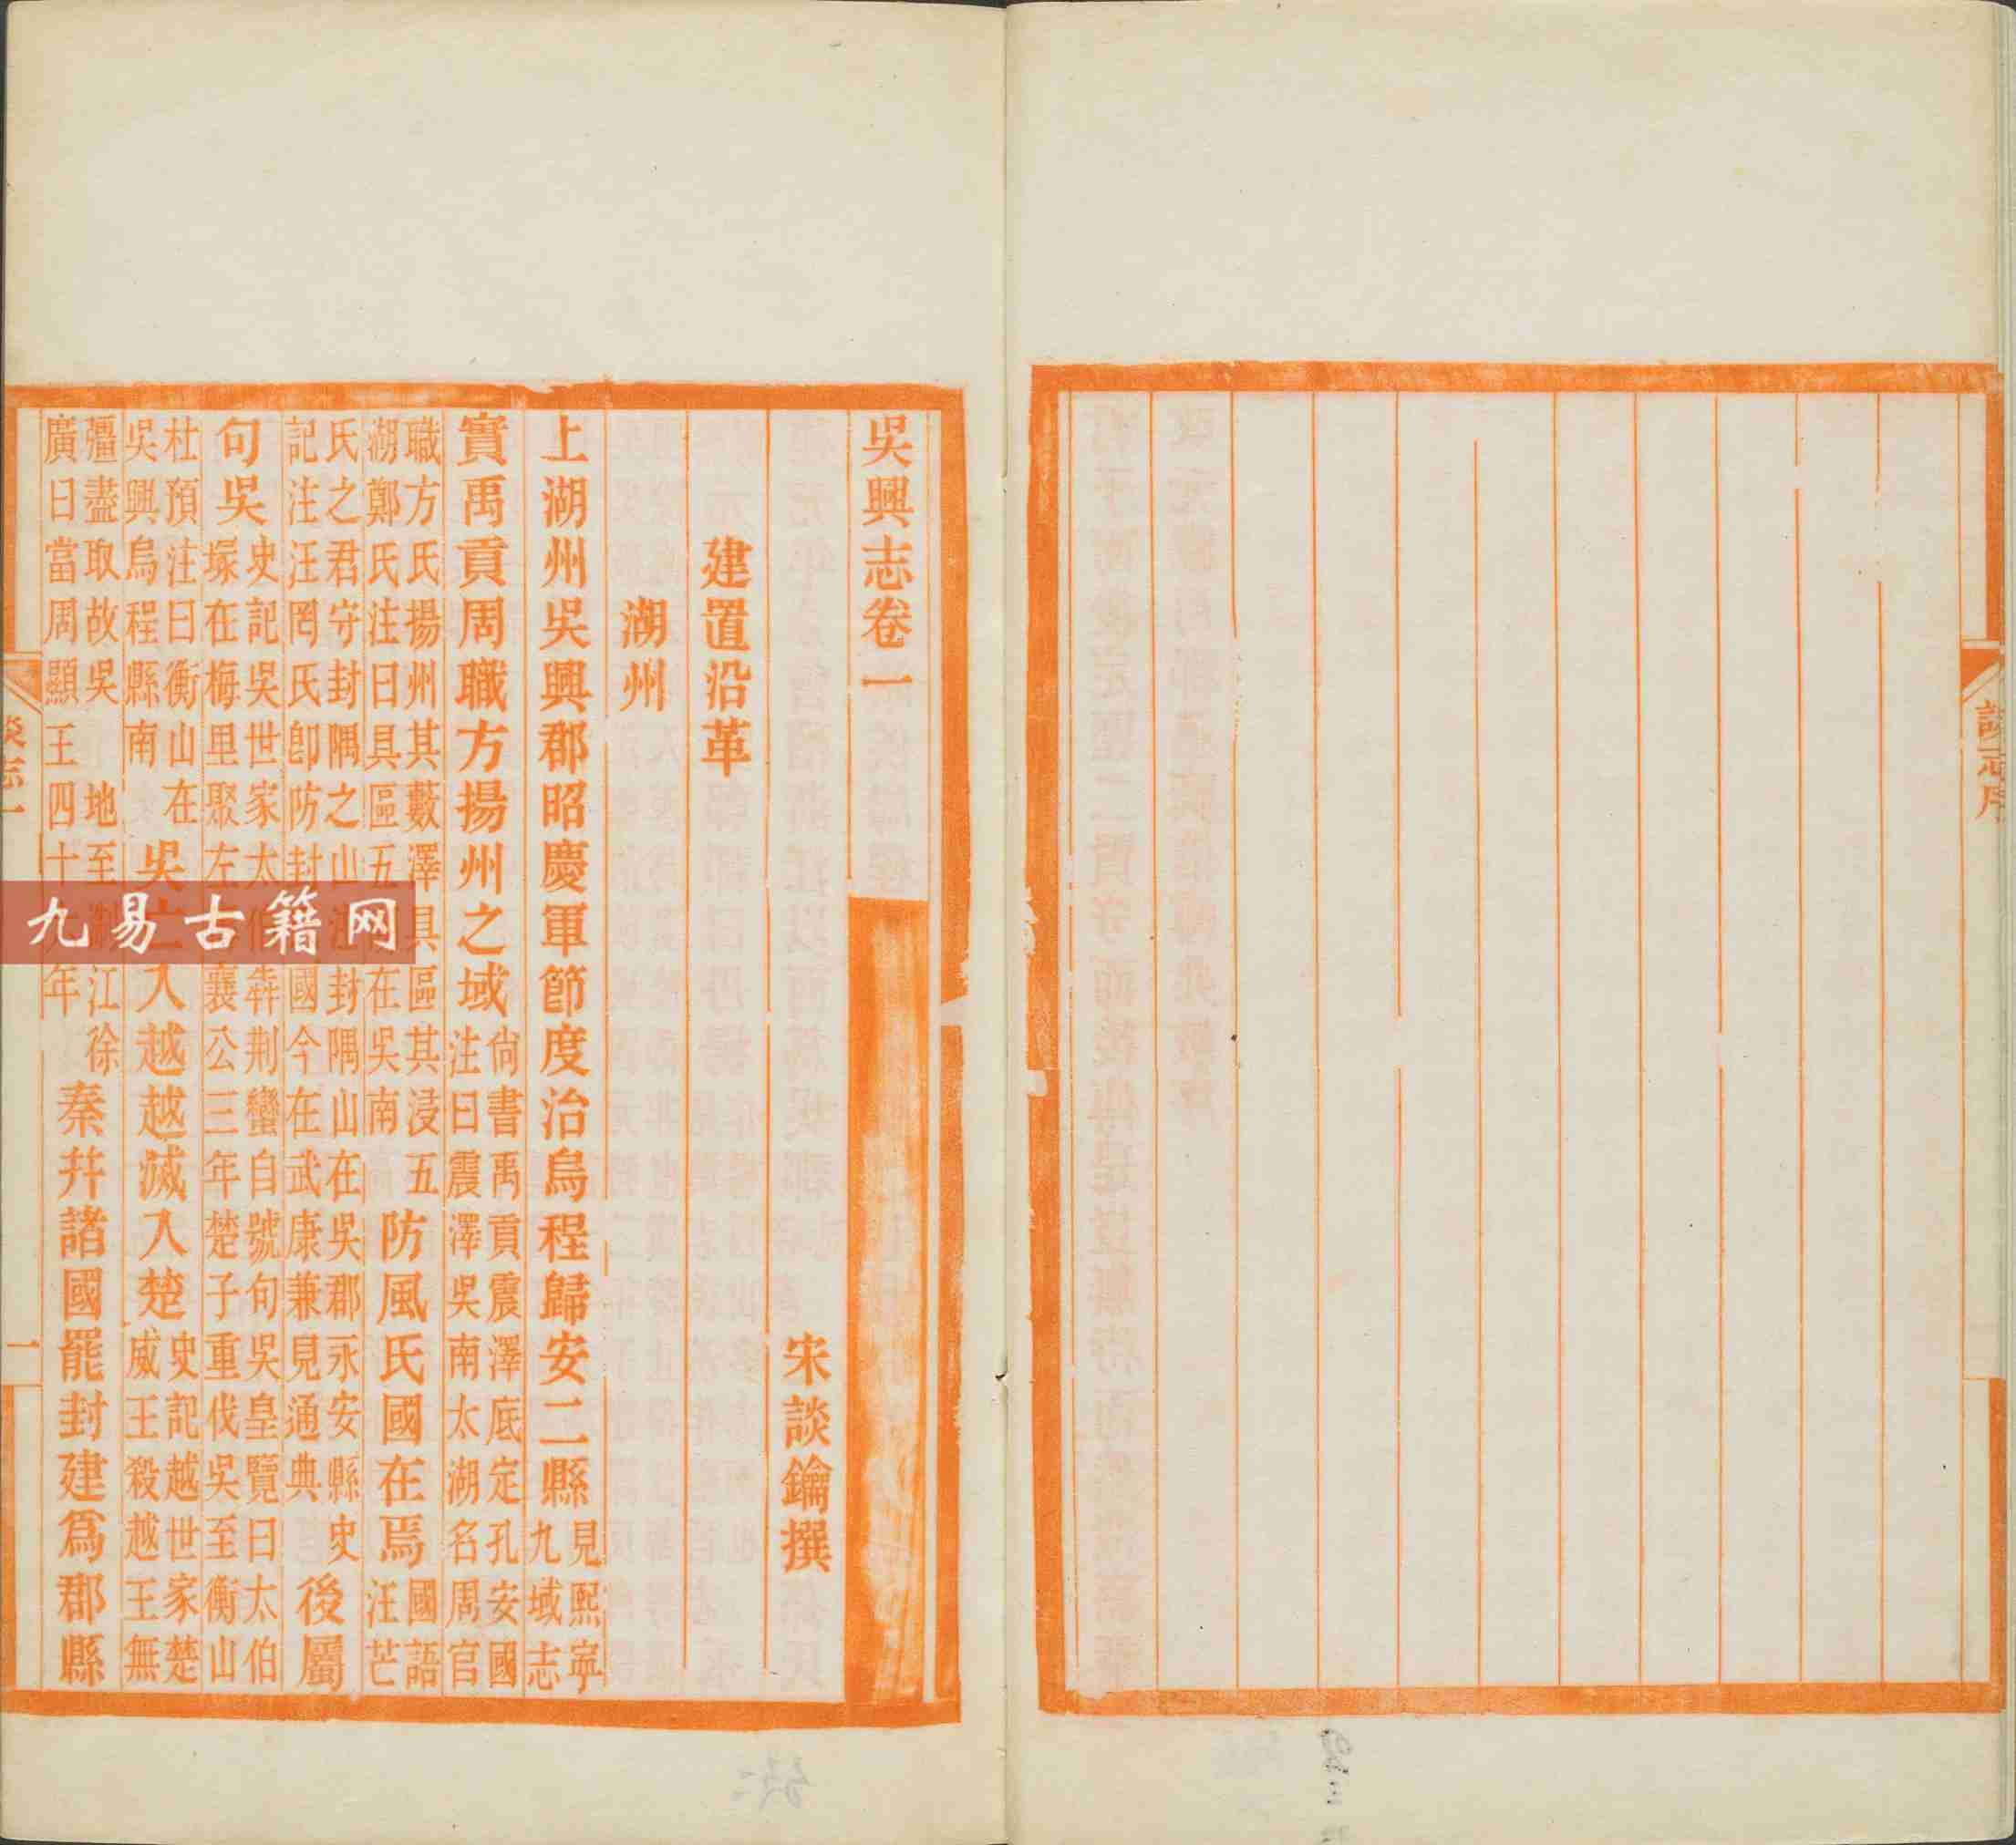 談志序
吳興志卷一
宋談鑰撰
建置沿革
湖州
上湖州吳興郡昭慶軍節度治烏程歸安二縣見熙寧九域志
實禹貢周職方揚州之域尙書禹貢震澤底定孔安國注曰震澤吳南太湖名周官
職方氏揚州其藪澤具區其浸五湖鄭氏注曰具區五在吳南防風氏國在焉國語汪芒
氏之君守封隅之山封隅山在吳郡永安縣史記注汪罔氏卽防封國今在武康兼見通典後屬
句吳史記吳世家太伯犇荆蠻自號句吳皇覽曰太伯塚在梅里聚左襄公三年楚子重伐吳至衡山
杜預注曰衡山在吳興烏程縣南吳入越越滅入楚史記越世家楚威王殺越王無
彊盡取故吳地至江徐廣曰當周顯王四十年秦幷諸國罷封建爲郡縣
談志一
一
九易古籍网